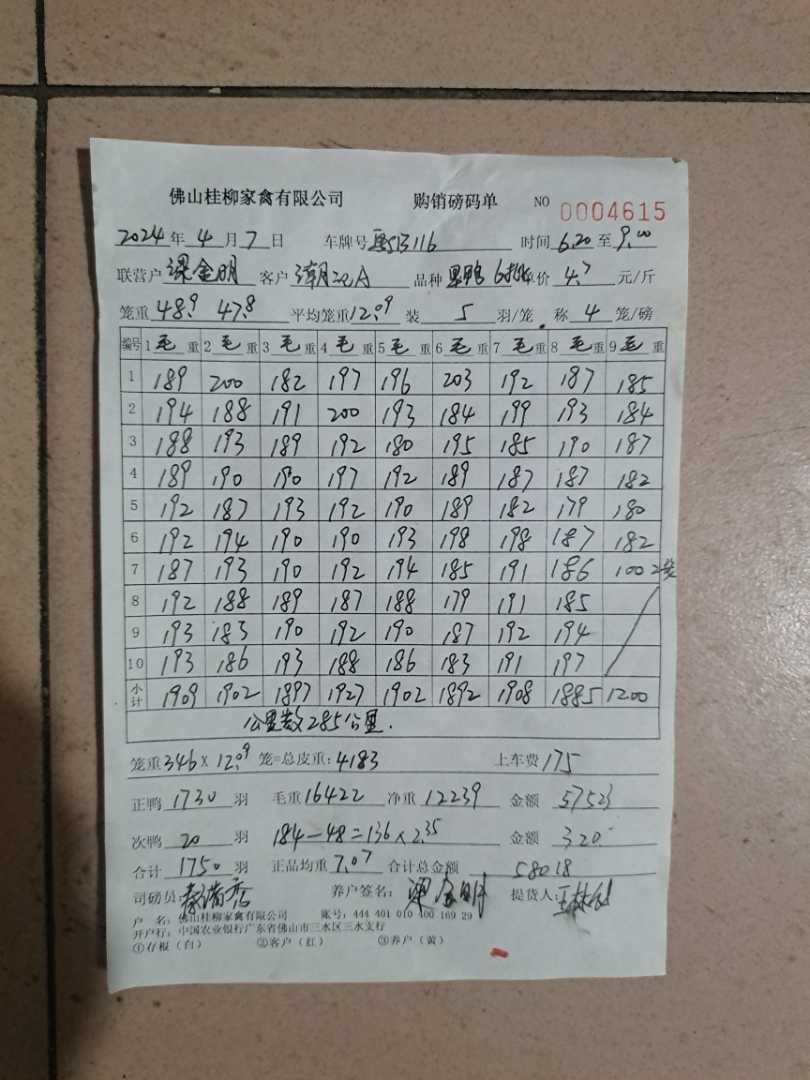 佛山桂柳家禽有限公司 购销磅码单 NO 0004615
2024年 4月 7日 车牌号 116 时间 6.20 至 9.00
联营户 梁金明 客户 潮汕A 品种 单价 4.7 元/斤
笼重 48.9 47.8 平均笼重 12.09 装 5 羽/笼 称 4 笼/磅
编号 1 毛 重 2 毛 重 3 毛 重 4 毛 重 5 毛 重 6 毛 重 7 毛 重 8 毛 重 9 毛 重
1 189 200 182 197 196 203 192 187 185
2 194 188 191 200 193 184 199 193 184
3 188 193 189 192 180 195 185 190 187
4 189 190 190 197 192 189 187 187 182
5 192 187 193 192 190 189 182 179 180
6 192 194 190 190 193 198 198 187 182
7 187 193 190 192 194 185 191 186 100 2笼
8 192 188 189 187 188 179 191 185
9 193 183 190 192 190 187 192 194
10 193 186 193 188 186 183 191 197
小计 1909 1902 1897 1927 1902 1892 1908 1885 1200
公里数285公里.
笼重 346 × 12.09 笼=总皮重: 4183 上车费 175
正鸭 1730 羽 毛重 16422 净重 12239 金额 57523
次鸭 20 羽 184-48=136×2.35 金额 320.
合计 1750 羽 正品均重 7.07 合计总金额 58018
司磅员: 养户签名: 梁金明 提货人:
户 名: 佛山桂柳家禽有限公司 账号: 444 401 010 400 169 29
开户行: 中国农业银行广东省佛山市三水区三水支行
①存根(白) ②客户(红) ③养户(黄)